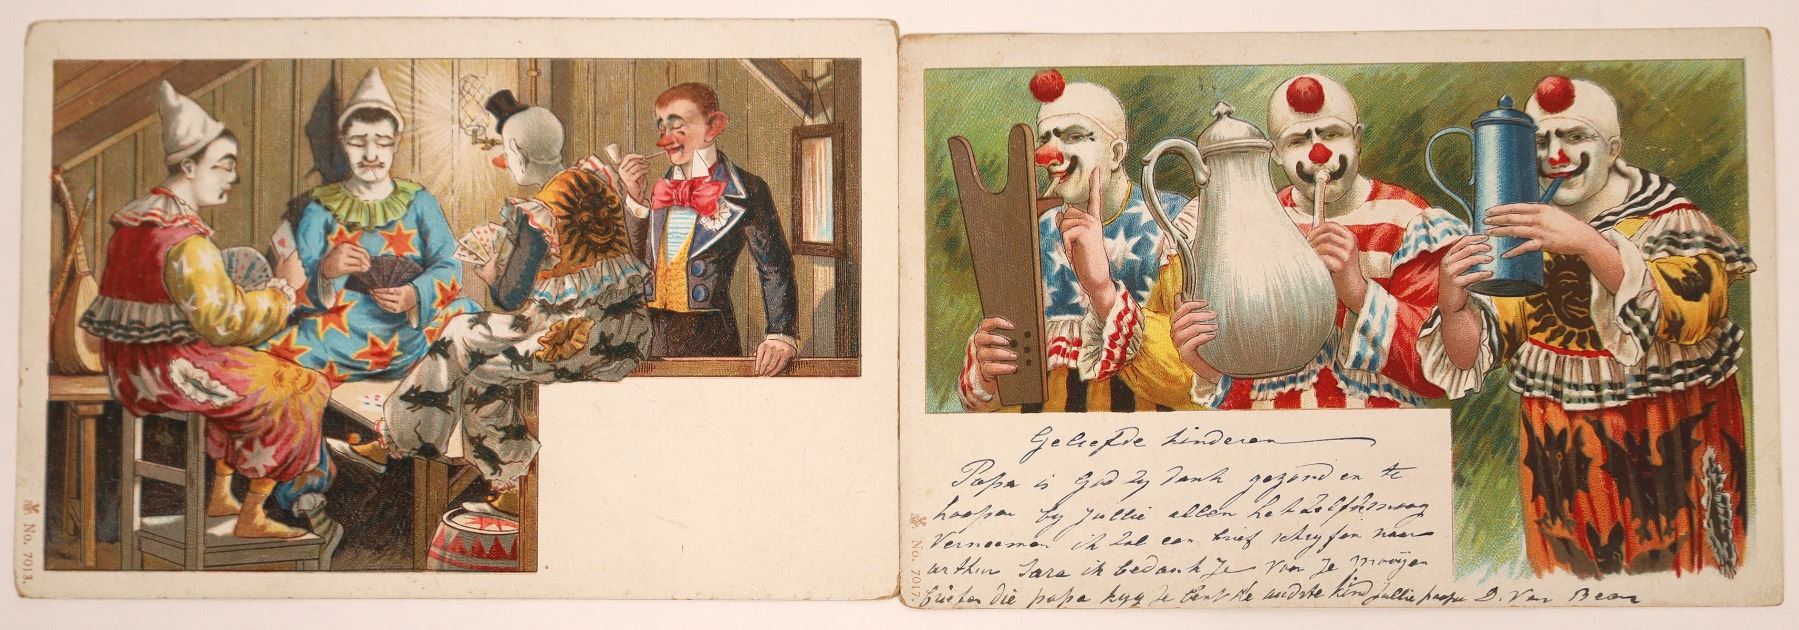 No. 7013.
No. 7017.
Geliefde kinderen
Papa is God zy dank gezond en te
hoopen by Jullie allen het Zelfde mag
Vernoomen ik Zal een brief schryfen naar
arthur Sara ik bedank Je Voor Je mooijen
briefen die papa kryg Je bent de oudste kind Jullie papa D. Van Been